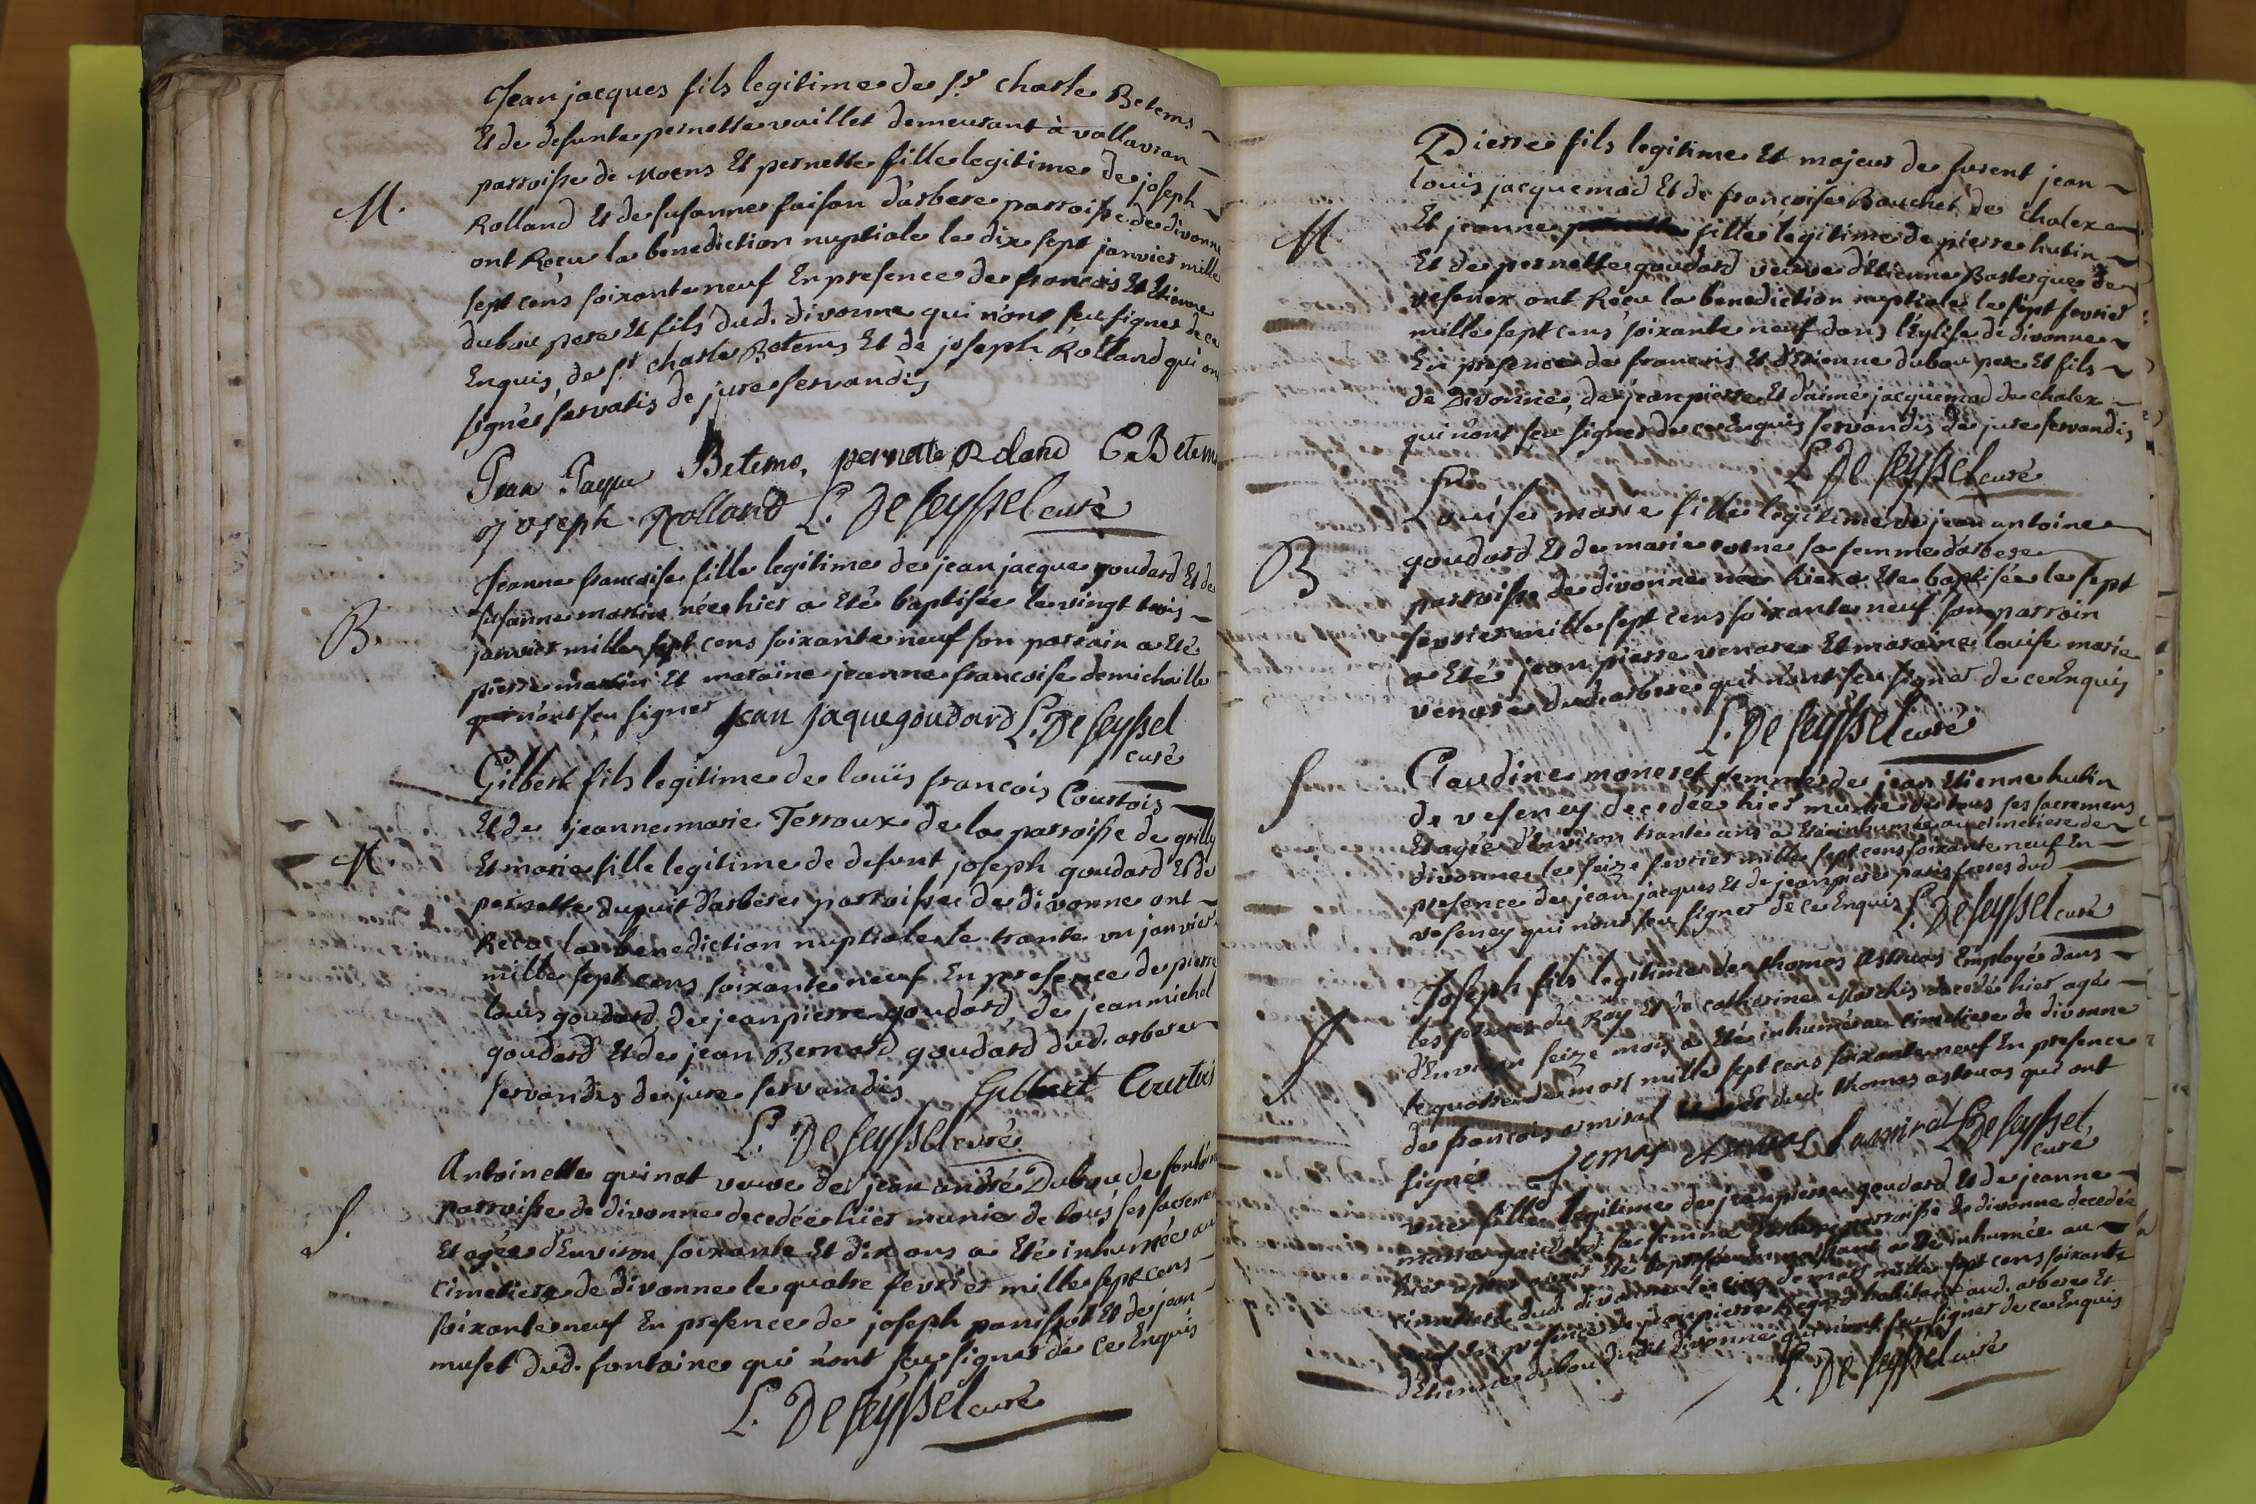 Jean jacques fils legitime de Sr. charle Betems
Et de defunte pernette vaillet demeurant à vallavran
parroisse de Moens Et pernette fille legitime de joseph
M.
Rolland Et de susanne faisan d'arbere parroisse de divonne
ont Reçu la benediction nuptiale le dix sept janvier mille
sept cens soixante neuf En presence de francois Et Etienne
dubou pere Et fils dud. divonne qui n'ont seu signer de ce
Enquis, de Sr. charle Betems Et de joseph Rolland qui ont
signés servatis de jure servandis
Jean Jaque Betems, pernette Roland C. Betems
joseph Rolland L. De Seyssel curé
Jeanne francoise fille legitime de jean jacque goudard Et de
B.
susanne martin née hier a Eté baptisée le vingt trois
janvier mille sept cens soixante neuf son parrain a Eté
pierre martin Et maraine jeanne francoise demichaille
qui n'ont seu signer jean jaque goudard L. De Seyssel
curé
Gilbert fils legitime de loüis francois Courtois
Et de jeanne marie Terroux de la parroisse de grilly
M
Et marie fille legitime de defunt joseph goudard Et de
pernette dupuit d'arbere parroisse de divonne ont
Reçu la benediction nuptiale le trante un janvier
mille sept cens soixante neuf En presence de pierre
loüis goudard, de jean pierre goudard, de jean michel
goudard Et de jean Bernard goudard dud. arbere
servandis de jure servandis Gilbert Courtois
L. De Seyssel curé
Antoinette quinat veuve de jean andré Dubou de fontaine
S.
parroisse de divonne decedée hier munie de tous ses sacremens
Et agée d'Environ soixante Et dix ans a Eté inhumée au
cimetiere de divonne le quatre fevrier mille sept cens
soixante neuf En presence de joseph panissot Et de jean
muset dud. fontaine qui n'ont seu signer de ce Enquis
L. De Seyssel curé
Pierre fils legitime Et majeur de furent jean
louis jacquemad Et de françoise Bouchet de chalex
M
Et jeanne fille legitime de pierre hutin
Et de pernette goudard veuve d'Etienne Basterque de
vesenex ont Reçu la benediction nuptiale le sept fevrier
mille sept cens soixante neuf dans l'Eglise de divonne
En presence de francois Et d'Etienne dubou pere Et fils
de Divonne, de jean pierre Et d'aimé jacquemad de chalex
qui n'ont seu signer de ce Enquis servandis de jure servandis
L. De Seyssel curé
Louise marie fille legitime de jean antoine
B
goudard Et de marie sa femme d'arbere
parroisse de divonne née hier a Ete baptisée le sept
fevrier mille sept cens soixante neuf son parrain
a Eté jean pierre venare Et maraine louise marie
venare dud. arbere qui n'ont seu signer de ce Enquis
L. De Seyssel curé
S
Claudine moneret femme de jean Etienne hutin
de veseney decedée hier munie de tous ses sacremens
Et agée d'Environ trante ans a Eté inhumée au cimetiere de
divonne le seize fevrier mille sept cens soixante neuf En
presence de jean jacques Et de jean pierre paris freres dud
veseney qui n'ont seu signer de ce Enquis L. De Seyssel curé
Joseph fils legitime de thomas astruas Employé dans
S
les fermes du Roy Et de catherine Marchis decedé hier agé
d'Environ seize mois a Eté inhumé au cimetiere de divonne
le quatre de mars mille sept cens soixante neuf En presence
de francois amiral Et dud. thomas astruas qui ont
signés Tomas Astruas Lamiral L. De Seyssel
curé
une fille legitime de jean pierre goudard Et de jeanne
marie sa femme d'arbere parroisse de divonne decedée
hier apres avoir Eté baptisée en naissant a Eté inhumée au
cimetiere dud. divonne le cinq de mars mille sept cens soixante
neuf En presence de jean pierre Regard habitant aud. arbere Et
d'Etienne dubou dudit divonne qui n'ont seu signer de ce Enquis
L. De Seyssel curé